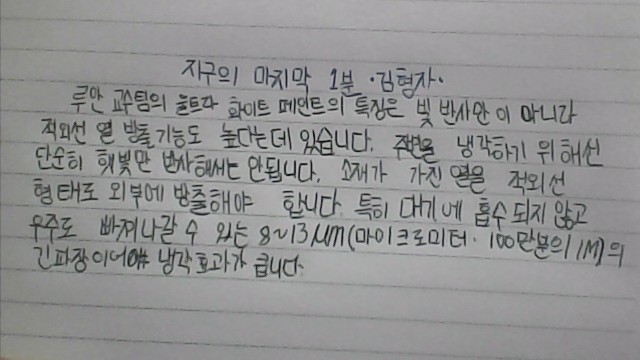 지구의 마지막 1분 ·김형자·
루안 교수팀의 울트라 화이트 페인트의 특징은 빛 반사만이 아니라
적외선 열 방출 기능도 높다는데 있습니다. 주변을 냉각하기 위해선
단순히 햇빛만 반사해서는 안됩니다. 소재가 가진 열을 적외선
형태로 외부에 방출해야 합니다. 특히 대기에 흡수되지 않고
우주로 빠져나갈 수 있는 8~13μm(마이크로미터·100만분의 1M)의
긴파장이어야 냉각효과가 큽니다.